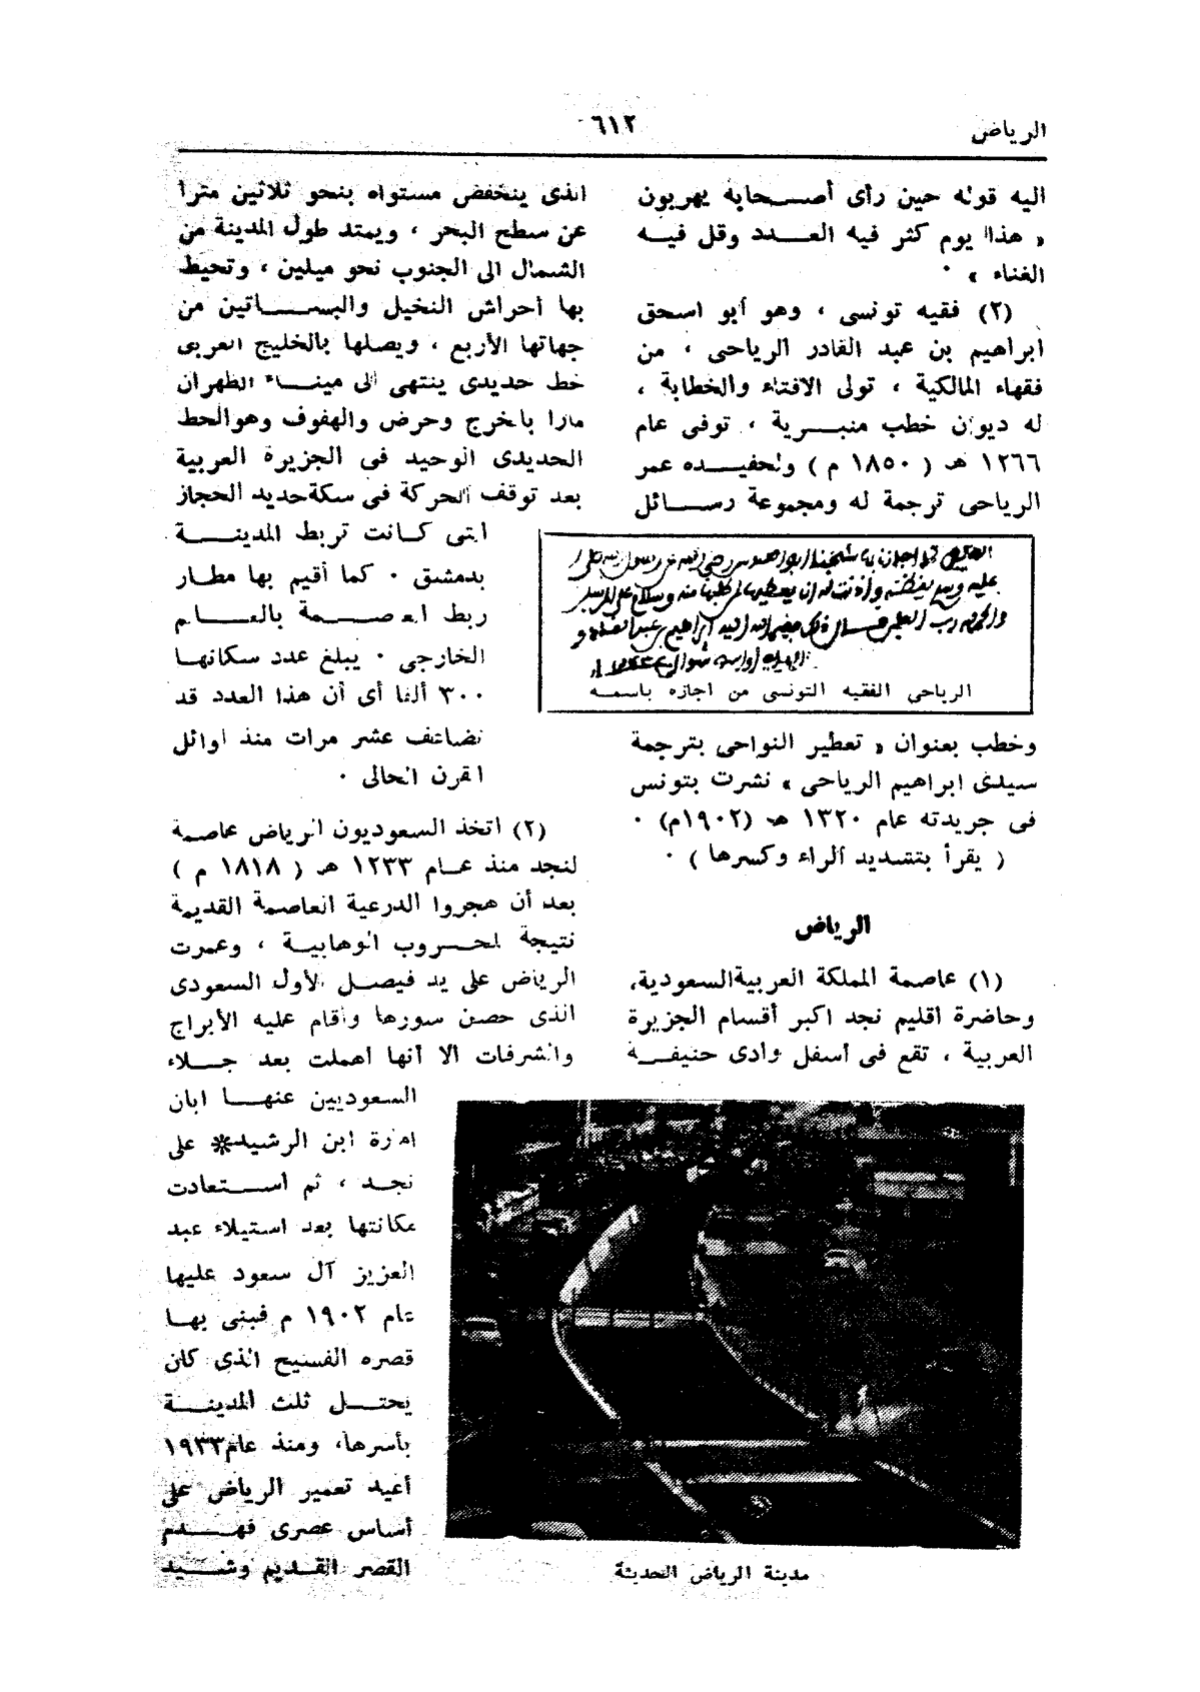 الرياض
٦١٢
اليه قوله حين رأى أصـــحابه يهربون
« هذا يوم كثر فيه العـــدد وقل فيــه
الغناء » ٠
(٢) فقيه تونسى ، وهو أبو اسحق
ابراهيم بن عبد القادر الرياحى ، من
فقهاء المالكية ، تولى الافتاء والخطابة ،
له ديوان خطب منبـــرية ، توفى عام
١٢٦٦ هـ ( ١٨٥٠ م ) ولحفيـــده عمر
الرياحى ترجمة له ومجموعة رســـائل
الرياحى الفقيه التونسى من اجازه باسمــه
وخطب بعنوان « تعطير النواحى بترجمة
سيدى ابراهيم الرياحى » نشرت بتونس
فى جريدته عام ١٣٢٠ هـ (١٩٠٢م) ٠
( يقرأ بتشديد الراء وكسرها ) ٠
الرياض
(١) عاصمة المملكة العربية السعودية،
وحاضرة اقليم نجد اكبر أقسام الجزيرة
العربية ، تقع فى أسفل وادى حنيفــة
مدينة الرياض الحديثة
الذى ينخفض مستواه بنحو ثلاثين مترا
عن سطح البحر ، ويمتد طول المدينة من
الشمال الى الجنوب نحو ميلين ، وتحيط
بها أحراش النخيل والبســـاتين من
جهاتها الأربع ، ويصلها بالخليج العربى
خط حديدى ينتهى الى مينــاء الظهران
مارا بالخرج وحرض والهفوف وهو الخط
الحديدى الوحيد فى الجزيرة العربية
بعد توقف الحركة فى سكة حديد الحجاز
التى كــانت تربط المدينــــة
بدمشق ٠ كما أقيم بها مطــار
ربط العـصـــمة بالعـــالم
الخارجى ٠ يبلغ عدد سكانهــا
٣٠٠ ألفا أى أن هذا العدد قد
تضاعف عشر مرات منذ اوائل
القرن الحالى ٠
(٢) اتخذ السعوديون الرياض عاصمة
لنجد منذ عــام ١٢٣٣ هـ ( ١٨١٨ م )
بعد أن هجروا الدرعية العاصمة القديمة
نتيجة للحـــروب الوهابيــة ، وعمرت
الرياض على يد فيصــل الأول السعودى
الذى حصن سورها وأقام عليه الأبراج
والشرفات الا أنها أهملت بعد جـــلاء
السعوديين عنهـــا ابان
امارة ابن الرشيد* على
نجــد ، ثم اســـتعادت
مكانتها بعد استيلاء عبد
العزيز آل سعود عليها
عام ١٩٠٢ م فبنى بهــا
قصره الفسيح الذى كان
يحتـــل ثلث المدينــــة
بأسرها، ومنذ عام ١٩٣٣
أعيد تعمير الرياض على
أساس عصرى فهــــدم
القصر القــديم وشـــيد